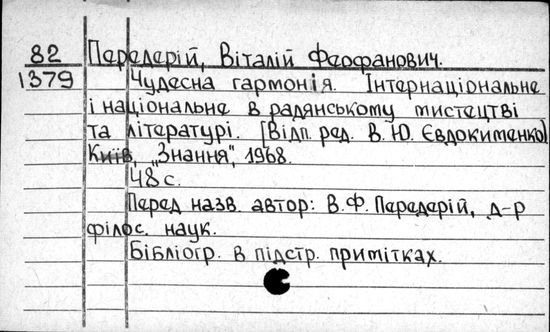 82
1379
Передерій, Віталій Феофанович.
Чудесна гармонія. Інтернаціональне
і національне в радянському мистецтві
та літературі. [Відп. ред. В. Ю. Євдокименко]
Київ, „Знання", 1968.
48 с.
Перед назв. автор: В. Ф. Передерій, д-р
філос. наук.
Бібліогр. в підстр. примітках.